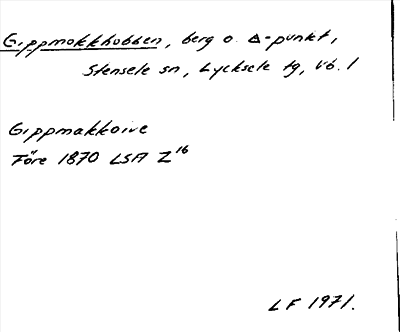 Gippmokkhobben, berg o. Δ-punkt,
Stensele sn, Lycksele tg, Vb. l
Gippmakkoive
Före 1870 LSA Z¹⁶
LF 1971.